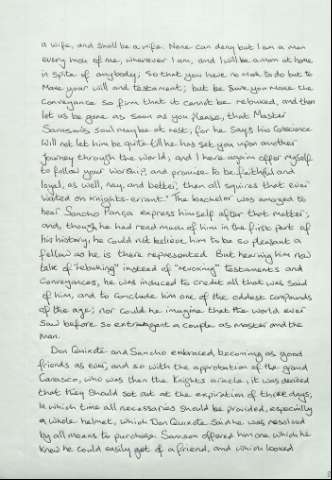 a wife, and shall be a wife. None can deny but I am a man
every inch of me, wherever I am, and I will be a man at home
in spite of anybody; so that you have no more to do but to
make your will and testament; but be sure you make the
conveyance so firm that it cannot be rebuked, and then
let us be gone as soon as you please, that Master
Samson's soul may be at rest; for he says his conscience
will not let him be quiet till he has set you upon another
journey through the world; and I here again offer myself
to follow your worship, and promise to be faithful and
loyal, as well, nay, and better, then all squires that ever
waited on knights-errant." The bachelor was amazed to
hear Sancho Pança express himself after that matter;
and, though he had read much of him in the first part of
his history, he could not believe him to be so pleasant a
fellow as he is there represented. But hearing him now
talk of "rebuking" instead of "revoking" testaments and
conveyances, he was induced to credit all that was said
of him, and to conclude him one of the oddest compounds
of the age; nor could he imagine that the world ever
saw before so extravagant a couple as master and the
man.
Don Quixote and Sancho embraced, becoming as good
friends as ever; and so with the approbation of the grand
Carasco, who was then the knight's oracle, it was decreed
that they should set out at the expiration of three days;
in which time all necessaries should be provided, especially
a whole helmet, which Don Quixote said he was resolved
by all means to purchase. Samson offered him one which he
knew he could easily get of a friend, and which looked